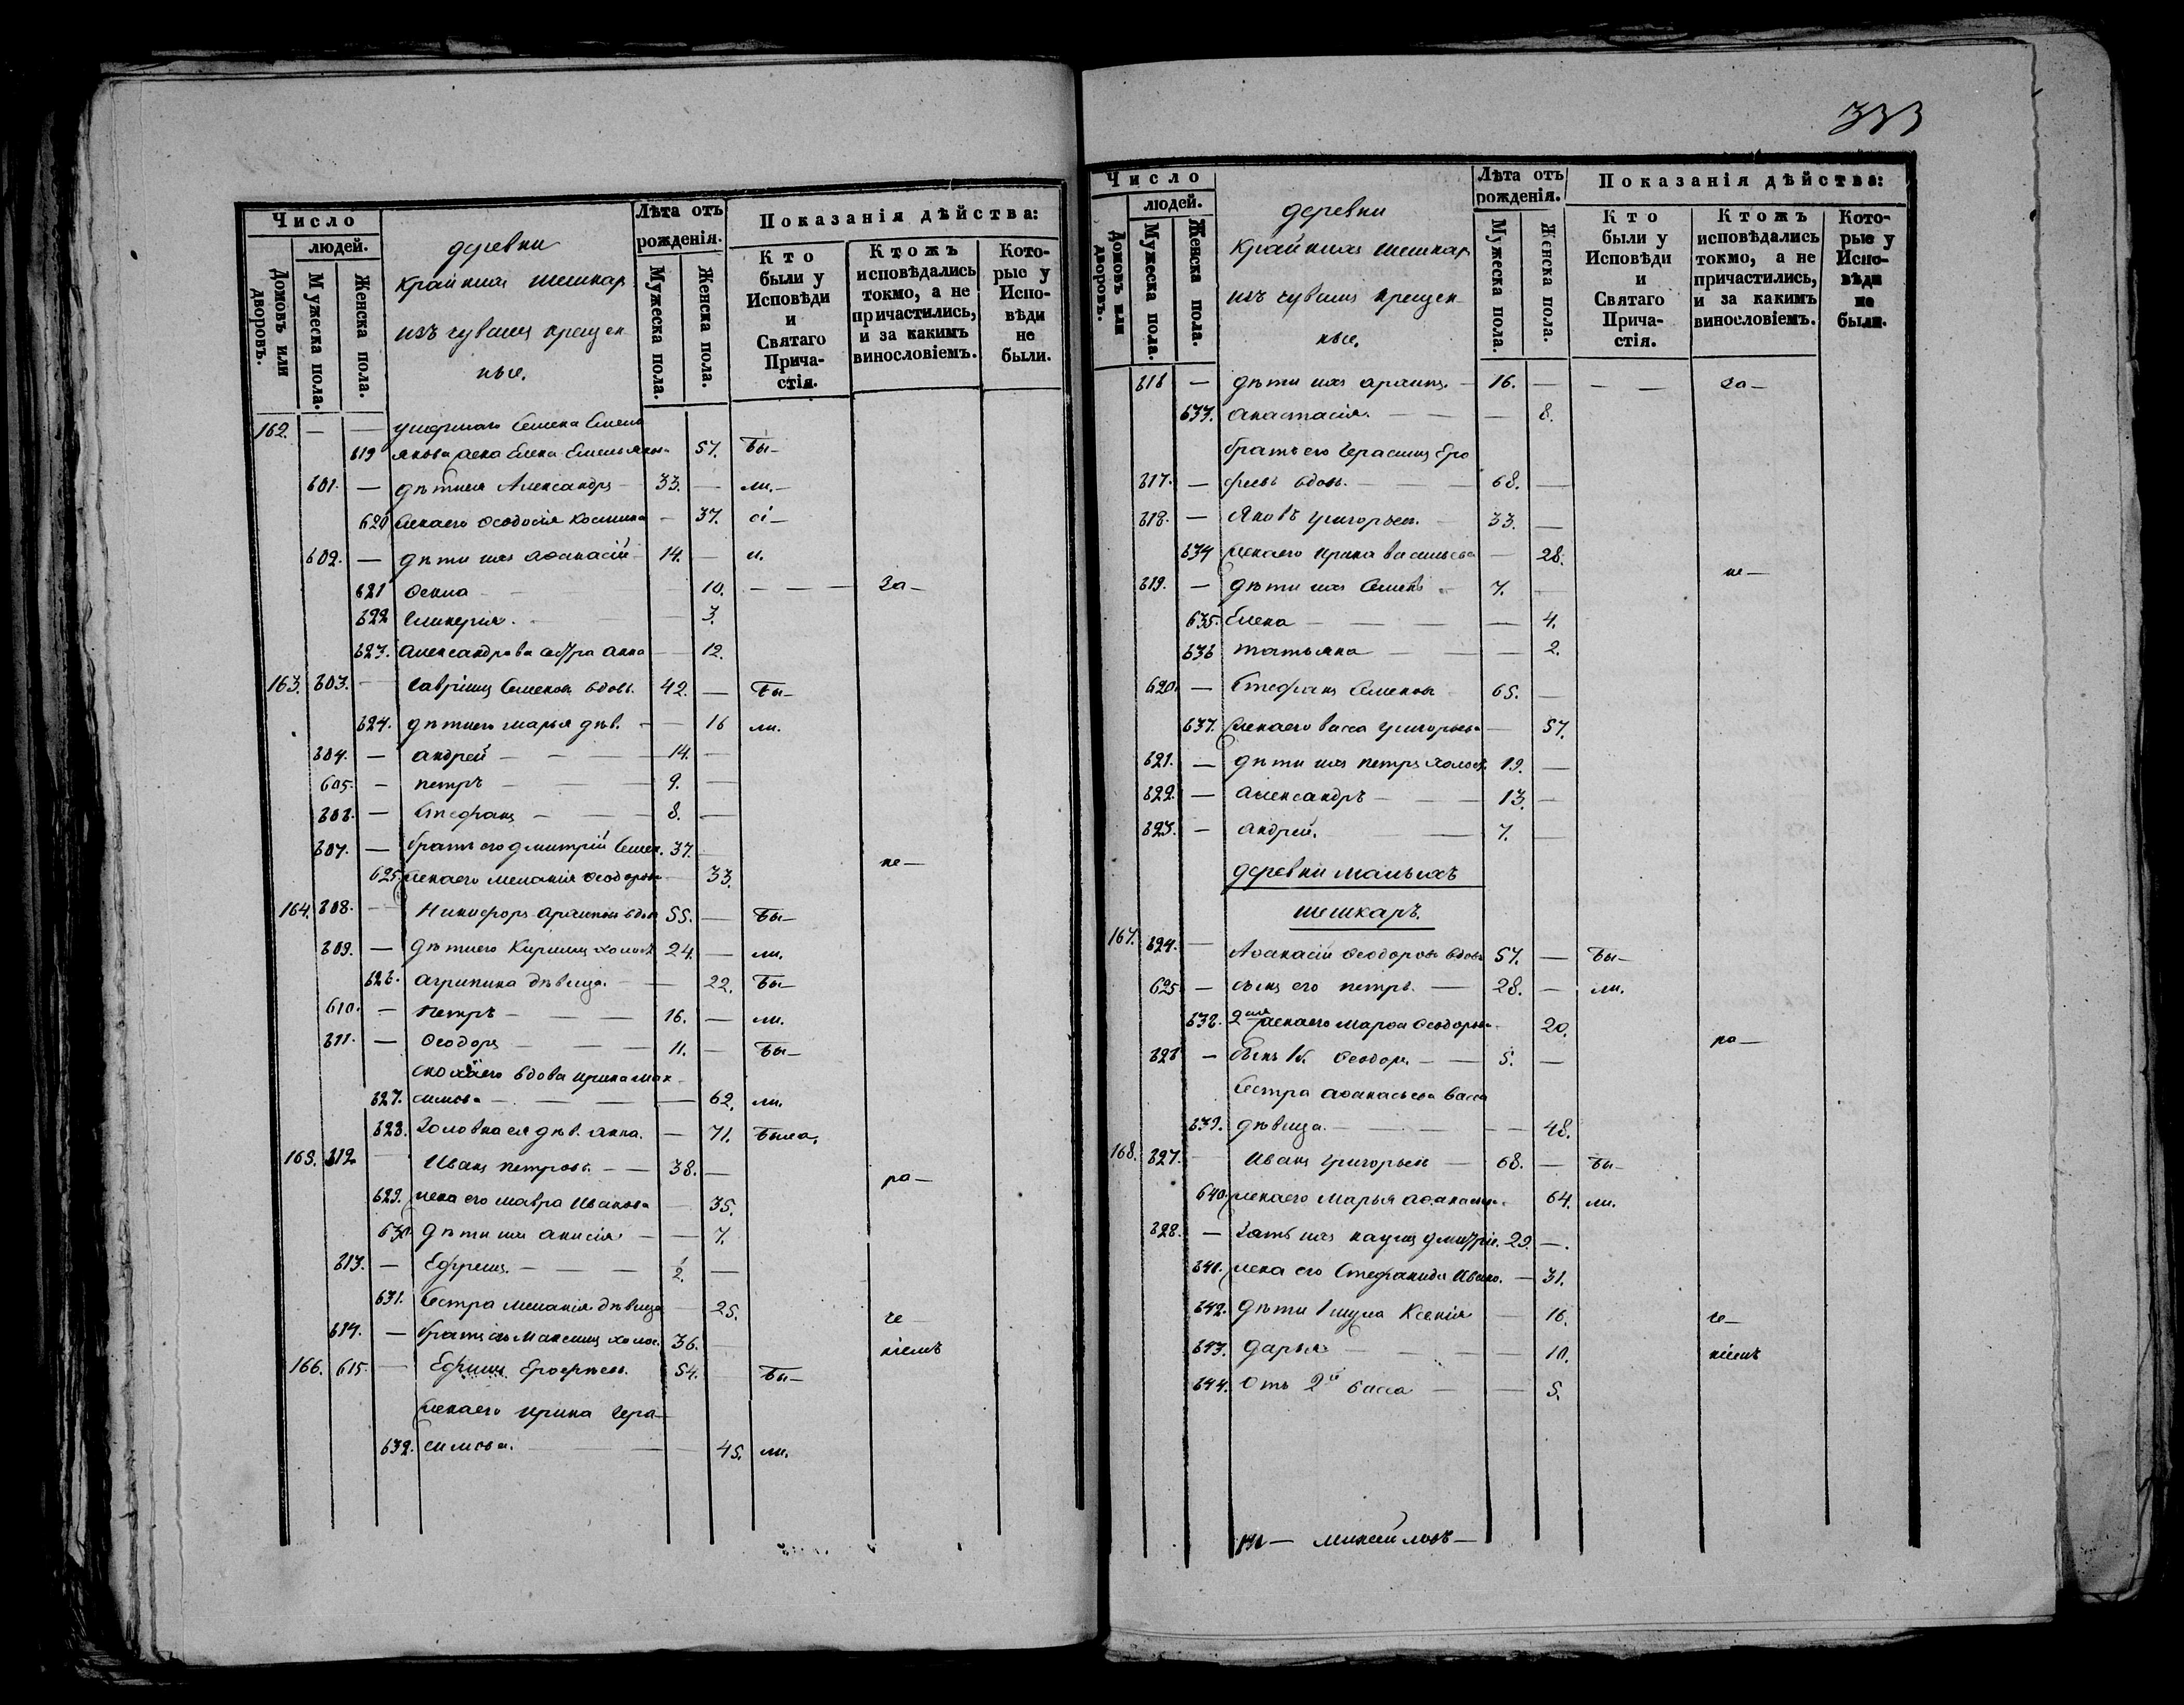 333
Число
людей.
Домовъ или дворовъ.
Мужеска пола.
Женска пола.
деревни
крайнихъ шешкар
изъ чувашъ крещен
ные.
Лѣта отъ рожденія.
Мужеска пола.
Женска пола.
Показанія дѣйства:
Кто были у Исповѣди и Святаго Прича-стія.
Ктожъ исповѣдались токмо, а не причастились, и за какимъ винословіемъ.
Кото-рые у Испо-вѣди не были.
162. — — умершаго Семена Емель
619 янова жена Елена Емельянова 57. Бы-
601. — дѣти ея Александръ — 33. — ли.-
620 жена его Ѳеодосія Космина — 37. сі-
602. — дѣти ихъ Аѳанасій 14. — и.
621 Ѳекла — 10. — — — За-
622 Гликерія. 3.
623. Александрова сестра Анна — 12.
163. 603. — Гавріилъ Семеновъ вдовъ. 42. — Бы-
624. дѣти его Марья дѣв. — — 16 ли.
604. — Андрей — — — 14. —
605. — Петръ — — — 9. —
606. — Стефанъ — — — 8. —
607. — братъ его Дмитрій Семен. 37. — не-
625. жена его Меланія Ѳеодорова 33.
164. 608. — Никифоръ вдов 55. — Бы-
609. — дѣти его Кириллъ холост 24. — ли.
626. Агрипина дѣвица. — — 22. Бы-
610. — Петръ — — — 16. — ли.
611. — Ѳеодоръ — — — 11. — Бы-
сноха его вдова Ирина Мак-
627. симова — — — — 62. ли.
628. Золовка ея дѣв. Анна. — 71. Была.
165. 612. — Иванъ Петровъ. — — 38. — ра-
629. жена его Мавра Иванова — 35.
630 дѣти ихъ Анисія — — 7.
613. — Ефремъ. — — — 1/2. —
631. Сестра Меланія дѣвица 25. че
614. — братъ съ Максимъ холос. 36. — ніемъ
166. 615. — Ефимъ Ерофѣевъ. 54. Бы-
жена его Ирина Гера-
632. симова. — — 45. ли.
Число
людей.
Домовъ или дворовъ.
Мужеска пола.
Женска пола.
деревни
крайнихъ шешкар
изъ чувашъ крещен
ные.
Лѣта отъ рожденія.
Мужеска пола.
Женска пола.
Показанія дѣйства:
Кто были у Исповѣди и Святаго Прича-стія.
Ктожъ исповѣдались токмо, а не причастились, и за какимъ винословіемъ.
Кото-рые у Испо-вѣди не были.
616 — дѣти ихъ — 16. — — — За-
633. Анастасія. — — — 8.
братъ его Герасимъ Еро
617. — феевъ вдовъ. — — — 68. —
618. — Яковъ Григорьевъ. — 33. —
634 жена его Ирина Васильева — 28. не-
619. — дѣти ихъ Семенъ — 7. —
635. Елена — — — — 4.
636 Татьяна — — — 2.
620. — Стефанъ Семеновъ 65. —
637. жена его Васса Григорьева — 57.
621. — дѣти ихъ Петръ холост. 19. —
622. — Александръ — — — 13. —
623. — Андрей. — — 7. —
деревни малыхъ
шешкаръ.
167. 624. — Аѳанасій Ѳеодоровъ вдовъ 57. — Бы-
625. — сынъ его Петръ. — 28. — ли.
638. 2ая жена его Марѳа Ѳеодорова 20. ра-
626 — Сынъ Ѳеодоръ. — — 5. —
Сестра Аѳанасьева Васса
639. дѣвица. — — — — 48.
168. 627. — Иванъ Григорьевъ — 68. — Бы-
640. жена его Марья Аѳанасьева. 64. ли.
628. — Зять ихъ Наумъ Дмитріе. 29. —.
641. жена его Стефанида Ивано. — 31.
642. дѣти 1 мужа Ксенія — 16. че-
643. Дарья — — — — 10. ніемъ
644. отъ 2й Васса — — 5.
— Михайловъ —